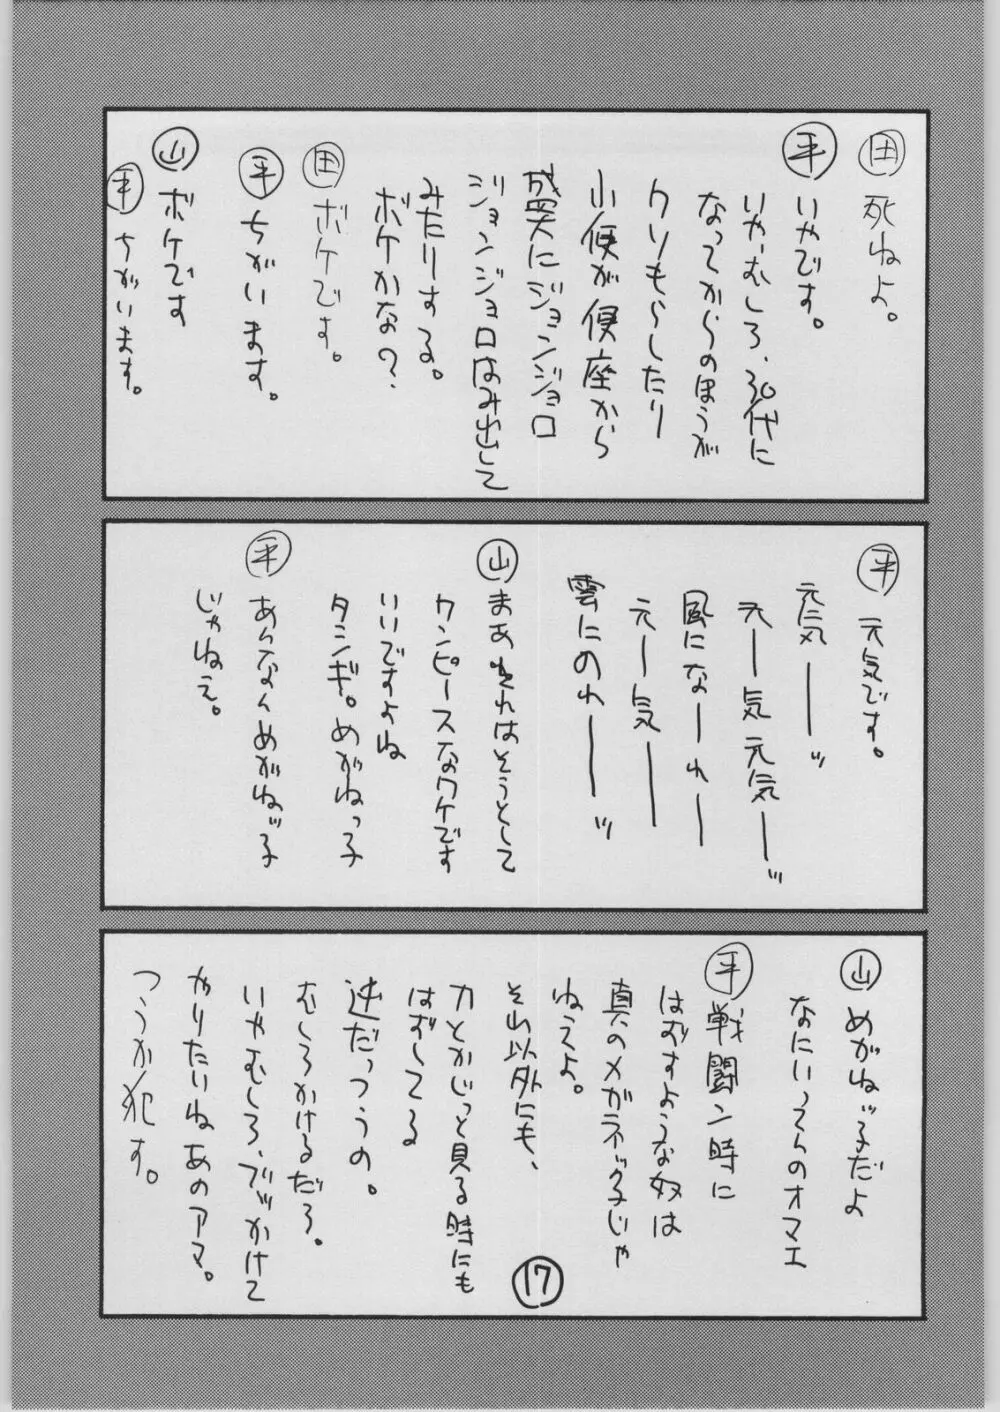 田 死ねよ。
平 いやです。
いやーむしろ、30代に
なってからのほうが
クソもらしたり
小便が便座から
盛大にジョンジョロ
ジョンジョロはみ出して
みたりする。
ボケかな？
田 ボケです。
平 ちがいます。
山 ボケです
平 ちがいます。
平 元気です。
元気――ッ
元ー気元気ーッ
風になーれー
元ー気ー
雲にのれーッ
山 まあそれはそうとして
ワンピースなワケです
いいですよね
タシギ。めがねっ子
平 あんなんめがねッ子
じゃねえ。
山 めがねッ子だよ
なにいってんのオマエ
平 戦闘ン時に
はずすような奴は
真のメガネッ子じゃ
ねえよ。
それ以外にも、
刀とかじっと見る時にも
はずしてる
逆だっつうの。
むしろかけるだろ。
いやむしろ、ブッかけて
やりたいねあのアマ。
つうか犯す。
17